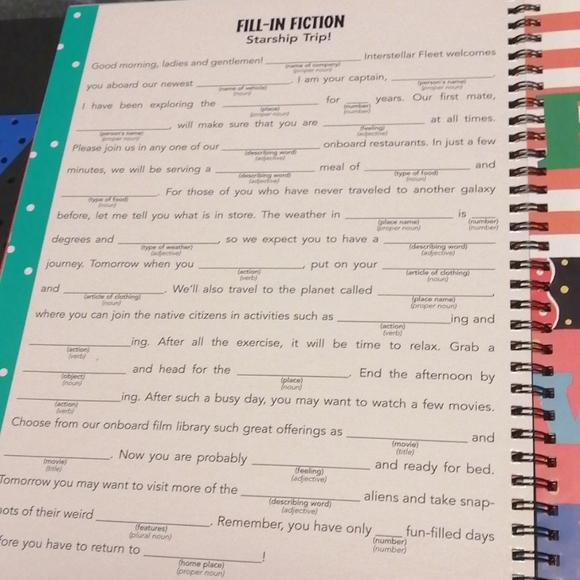 FILL-IN FICTION
Starship Trip!
Good morning, ladies and gentlemen! ____________ Interstellar Fleet welcomes
(name of company)
(proper noun)
you aboard our newest ____________. I am your captain, ____________.
(name of vehicle) (person's name)
(noun) (proper noun)
I have been exploring the ____________ for ____ years. Our first mate,
(place) (number)
(proper noun) (number)
____________, will make sure that you are ____________ at all times.
(person's name) (feeling)
(proper noun) (adjective)
Please join us in any one of our ____________ onboard restaurants. In just a few
(describing word)
(adjective)
minutes, we will be serving a ____________ meal of ____________ and
(describing word) (type of food)
(adjective) (noun)
____________. For those of you who have never traveled to another galaxy
(type of food)
(noun)
before, let me tell you what is in store. The weather in ____________ is ____
(place name) (number)
(proper noun) (number)
degrees and ____________, so we expect you to have a ____________
(type of weather) (describing word)
(adjective) (adjective)
journey. Tomorrow when you ____________, put on your ____________
(action) (article of clothing)
(verb) (noun)
and ____________. We'll also travel to the planet called ____________,
(article of clothing) (place name)
(noun) (proper noun)
where you can join the native citizens in activities such as ____________ing and
(action)
(verb)
____________ing. After all the exercise, it will be time to relax. Grab a
(action)
(verb)
____________ and head for the ____________. End the afternoon by
(object) (place)
(noun) (noun)
____________ing. After such a busy day, you may want to watch a few movies.
(action)
(verb)
Choose from our onboard film library such great offerings as ____________ and
(movie)
(title)
____________. Now you are probably ____________ and ready for bed.
(movie) (feeling)
(title) (adjective)
Tomorrow you may want to visit more of the ____________ aliens and take snap-
(describing word)
(adjective)
ots of their weird ____________. Remember, you have only ____ fun-filled days
(features) (number)
(plural noun) (number)
fore you have to return to ____________!
(home place)
(proper noun)